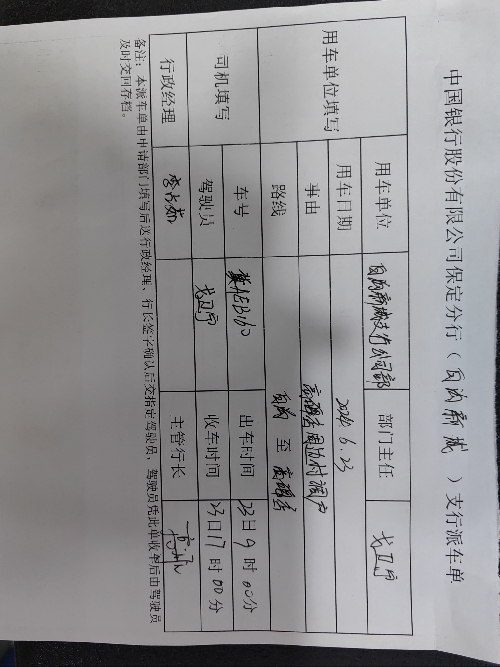 中国银行股份有限公司保定分行（白沟新城）支行派车单
用车单位填写 用车单位 白沟新城支行公司部 部门主任 戈卫宁
用车日期 2024.6.23
事由
路线 白沟 至
司机填写 车号 出车时间 23日9时00分
驾驶员 戈卫宁 收车时间 23日17时00分
行政经理 主管行长
备注：本派车单由申请部门填写后送行政经理、行长签字确认后交指定驾驶员，驾驶员凭此单收车后由驾驶员
及时交回存档。